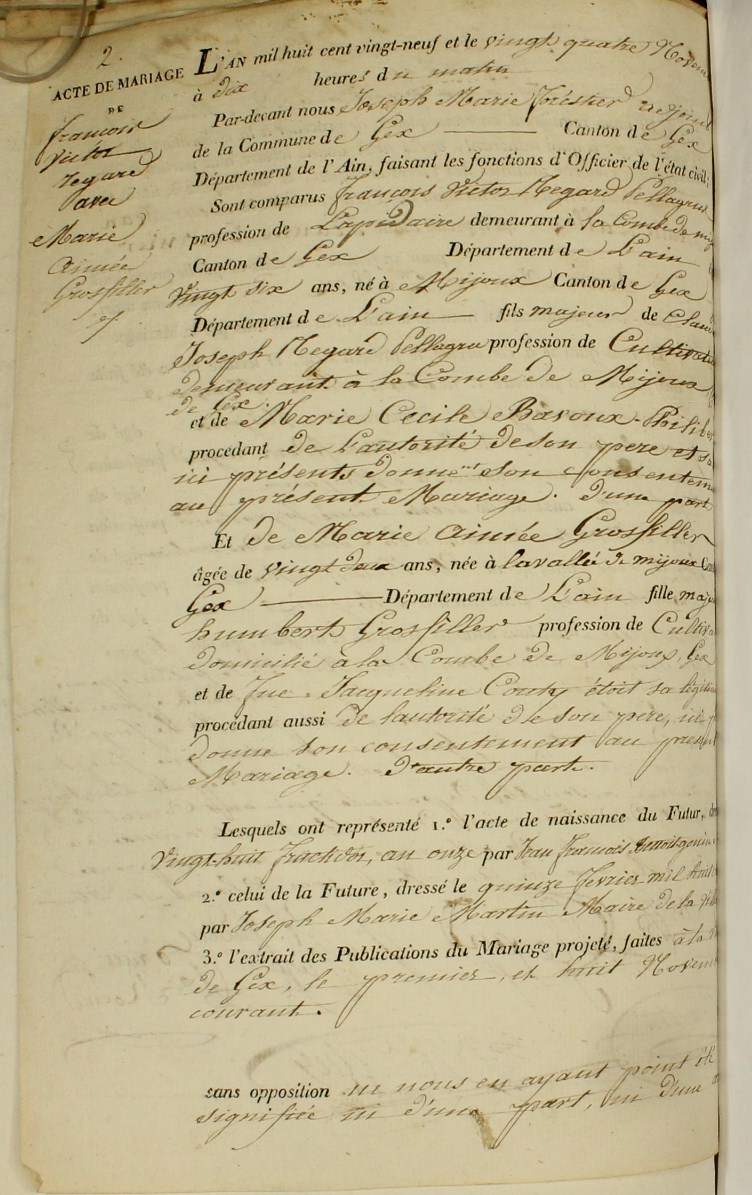 2.
ACTE DE MARIAGE
DE
francois
victor
regard
avec
Marie
Aimée
Grosfiller
L'AN mil huit cent vingt-neuf et le vingt quatre Novem
à dix heures du matin
Par-devant nous Joseph Marie adjoint
de la Commune de Gex Canton de Gex
Département de l'Ain, faisant les fonctions d'Officier de l'état civil;
Sont comparus francois Victor Regard Pellagrue
profession de Lapidaire demeurant à la Combe de mij
Canton de Gex Département de L'ain
vingt six ans, né à Mijoux Canton de Gex
Département de L'ain fils majeur de Claude
Joseph Regard Pellagru profession de Cultivateu
demeurant à la Combe de Mijoux
de Gex.
et de Marie Cecile Bavoux-Philibe
procedant de L'autorité de son pere et sa
ici présents donnent son consenteme
au présent Mariage. d'une part
Et de Marie Aimée Grosfiller
âgée de vingt deux ans, née à lavallée de mijoux Can
Gex Département de L'ain fille maje
humbert Grosfiller profession de Cultiva
domicilié à la Combe de Mijoux, Gex
et de fue Jacqueline Conty étoit sa légitim
procédant aussi de lautorité de son pere, ici p
donne son consentement au present
Mariage. d'autre part.
Lesquels ont représenté 1.º l'acte de naissance du Futur, dre
vingt huit fructidor, an onze par Jean francois
2.º celui de la Future, dressé le quinze fevrier mil huit
par Joseph Marie Martin Maire de la
3.º l'extrait des Publications du Mariage projeté, faites à la
de Gex, le premier, et huit Novem
courant.
sans opposition ni nous en ayant point été
signifiée ni d'une part, ni d'une